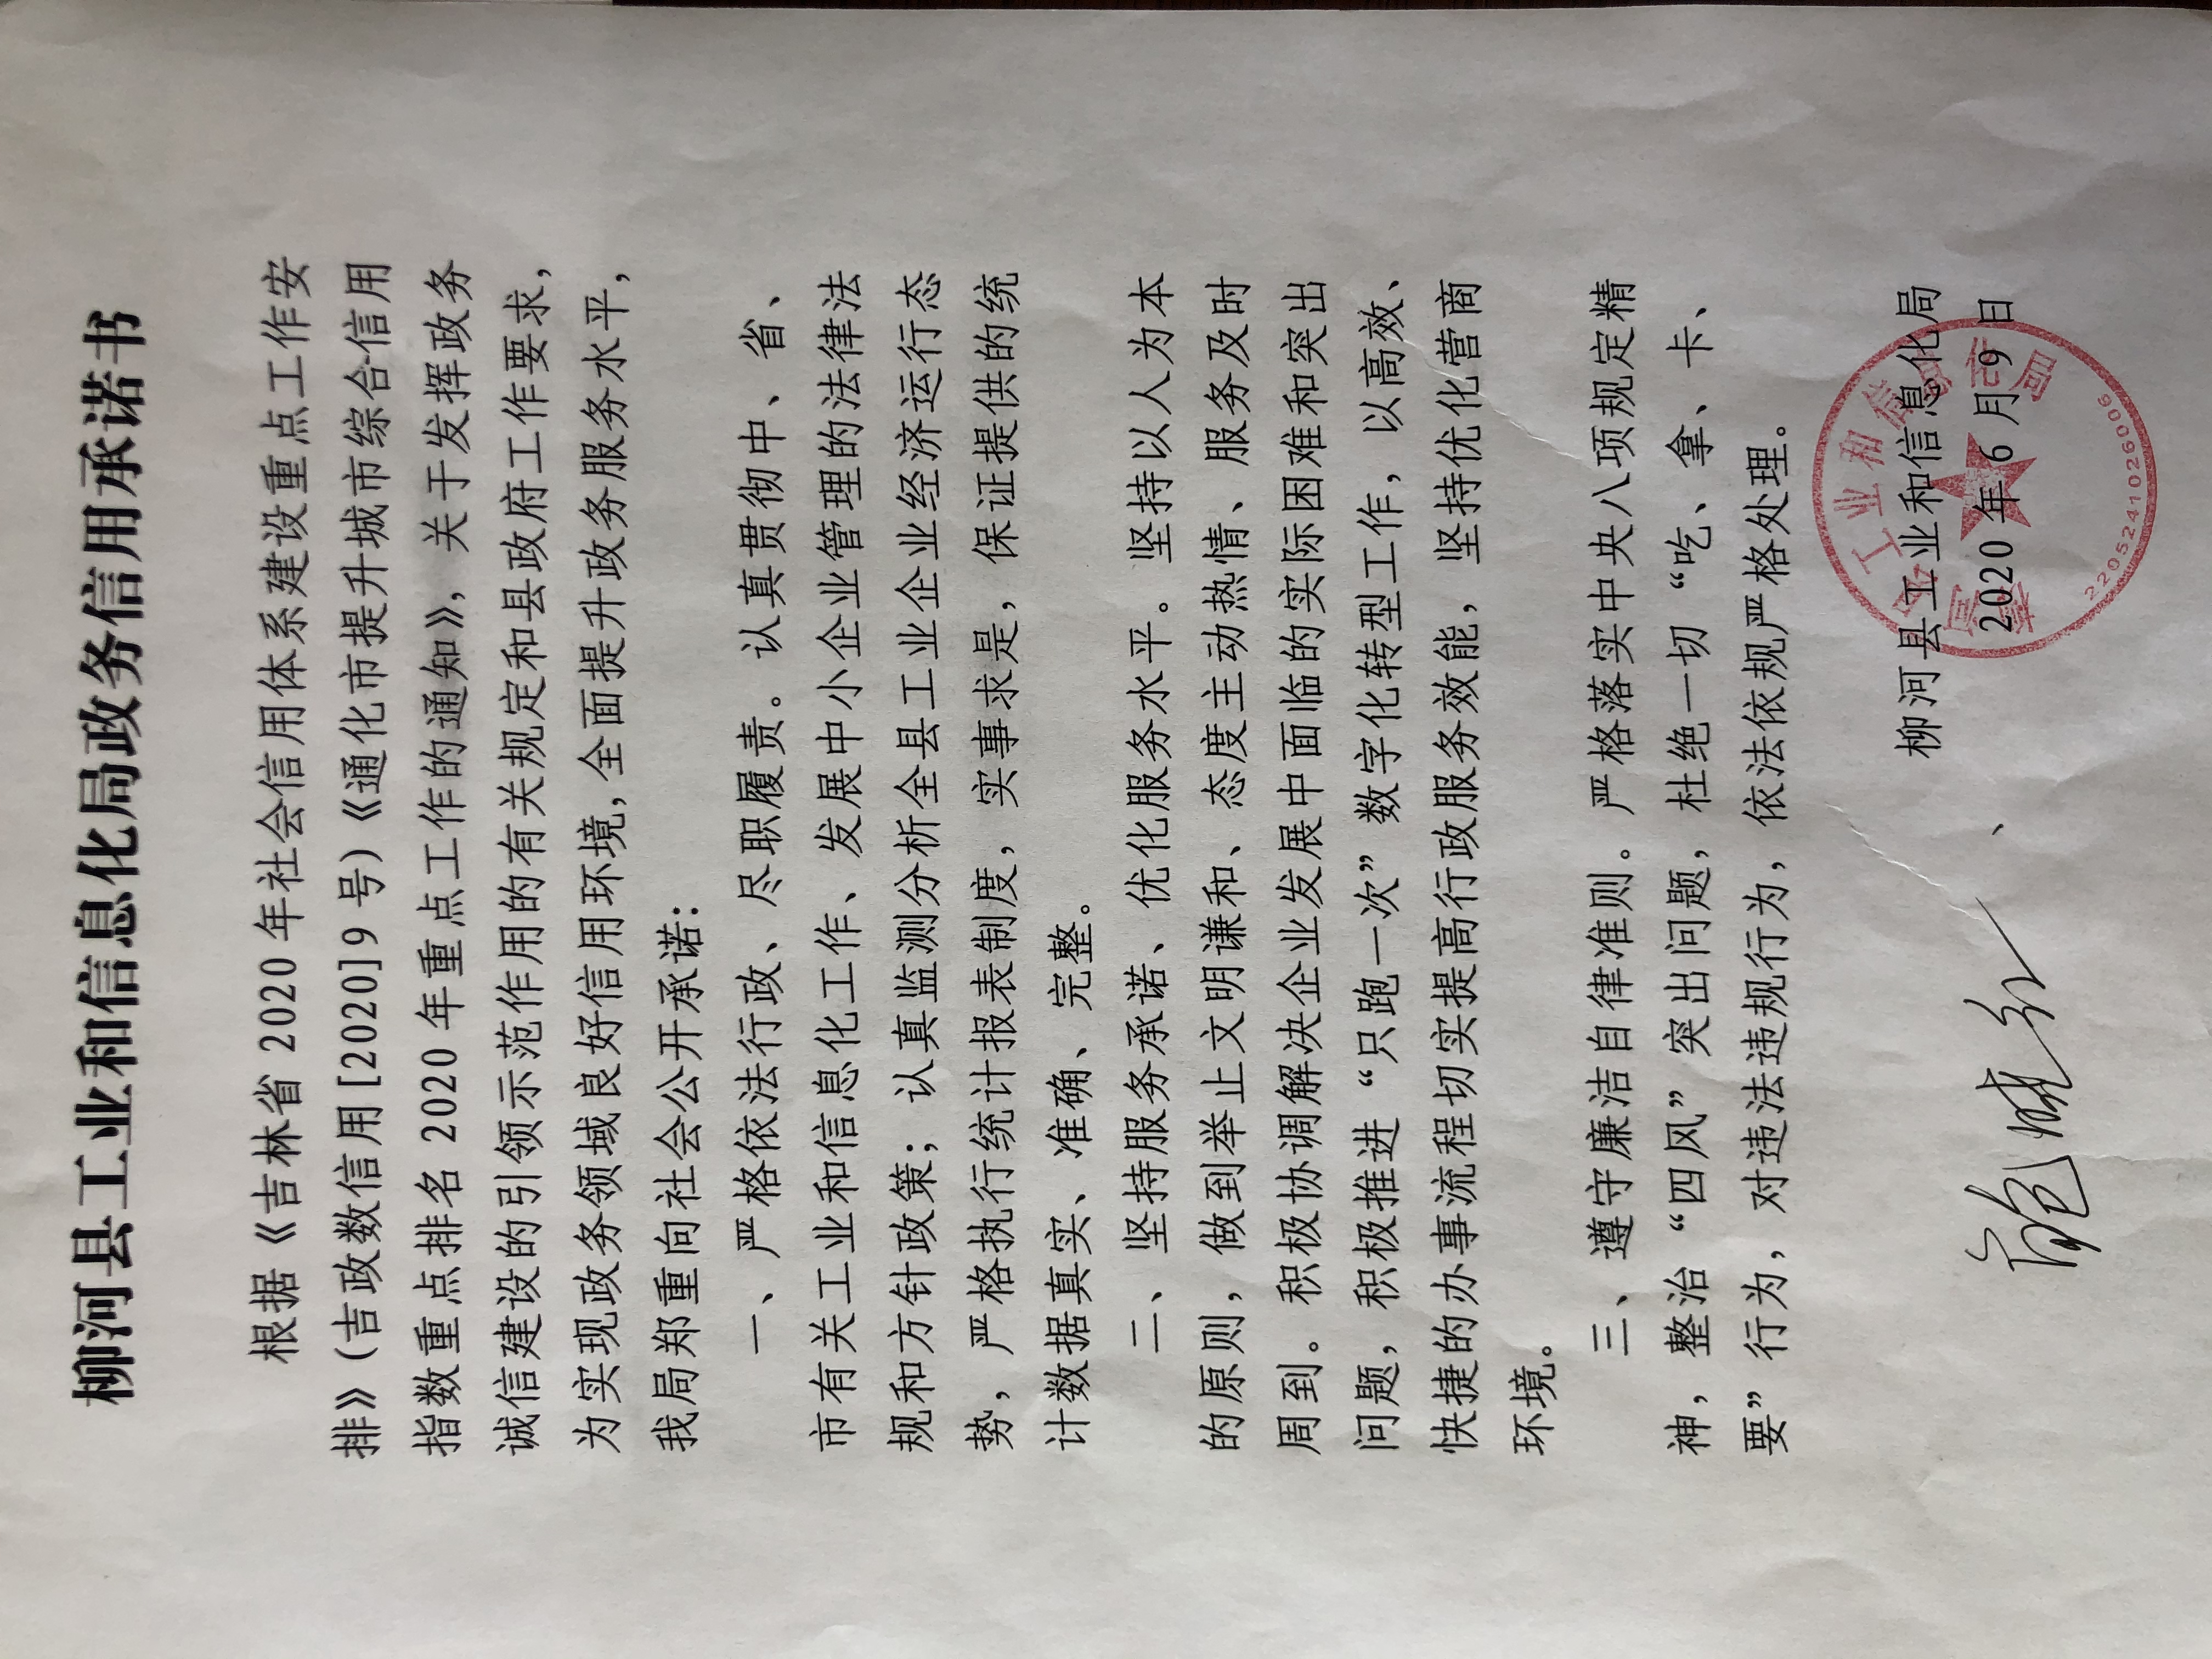 柳河县工业和信息化局政务信用承诺书
根据《吉林省 2020 年社会信用体系建设重点工作安
排》（吉政数信用[2020]9 号）《通化市提升城市综合信用
指数重点排名 2020 年重点工作的通知》，关于发挥政务
诚信建设的引领示范作用的有关规定和县政府工作要求，
为实现政务领域良好信用环境，全面提升政务服务水平，
我局郑重向社会公开承诺：
一、严格依法行政、尽职履责。认真贯彻中、省、
市有关工业和信息化工作、发展中小企业管理的法律法
规和方针政策；认真监测分析全县工业企业经济运行态
势，严格执行统计报表制度，实事求是，保证提供的统
计数据真实、准确、完整。
二、坚持服务承诺、优化服务水平。坚持以人为本
的原则，做到举止文明谦和、态度主动热情、服务及时
周到。积极协调解决企业发展中面临的实际困难和突出
问题，积极推进“只跑一次”数字化转型工作，以高效、
快捷的办事流程切实提高行政服务效能，坚持优化营商
环境。
三、遵守廉洁自律准则。严格落实中央八项规定精
神，整治“四风”突出问题，杜绝一切“吃、拿、卡、
要”行为，对违法违规行为，依法依规严格处理。
柳河县工业和信息化局
2020 年 6 月 9 日
2205241026006